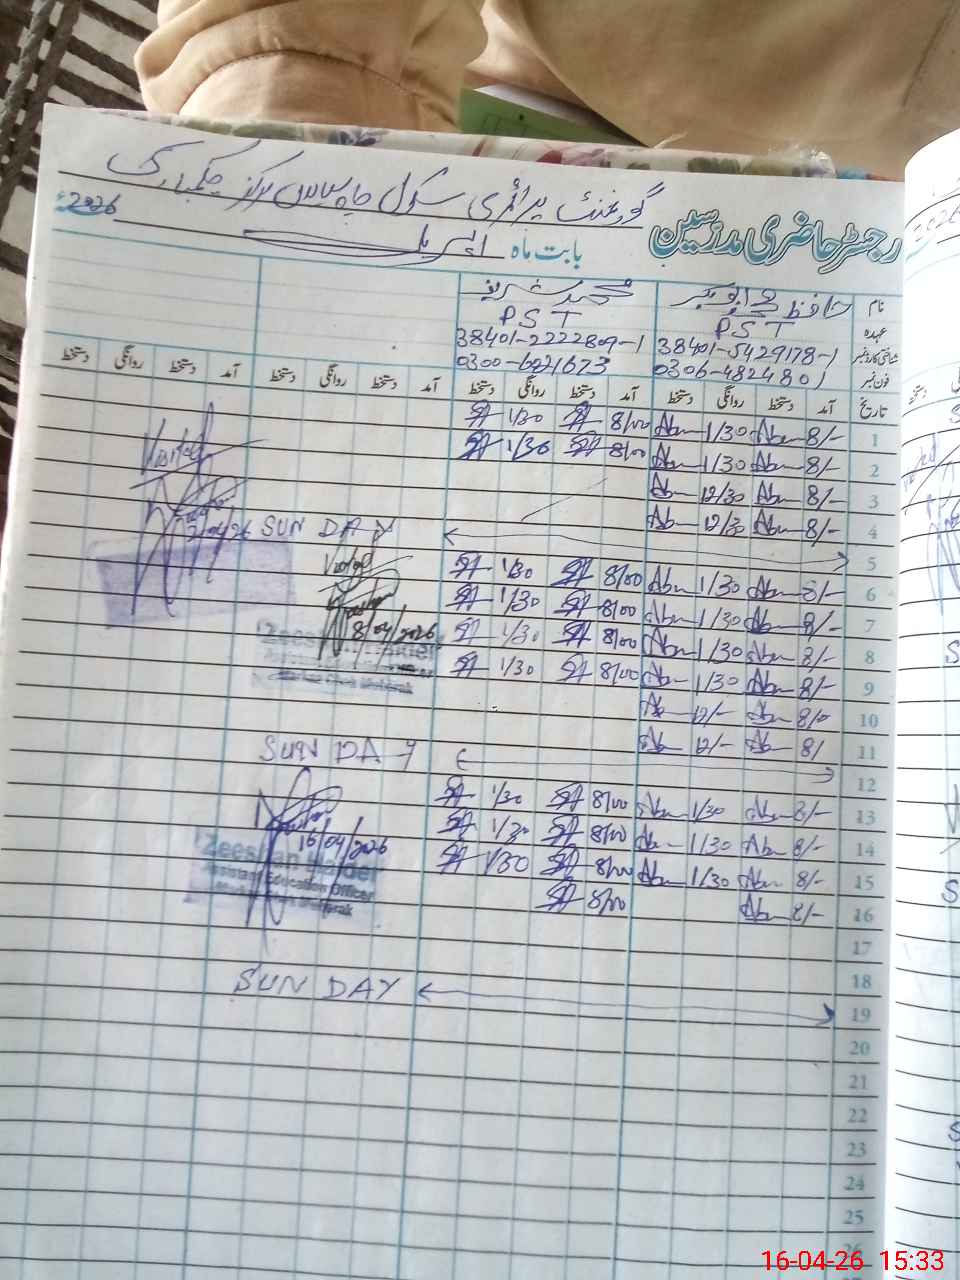 گورنمنٹ پرائمری سکول چاہ سیداں مرکز چک مبارک
رجسٹر حاضری مدرسین
بابت ماہ اپریل 2026ء
نام حافظ محمد ابوبکر محمد شریف
عہدہ P.S.T P.S.T
شناختی کارڈ نمبر 38401-5429178-1 38401-2222809-1
فون نمبر 0306-4824801 0300-6021673
تاریخ آمد دستخط روانگی دستخط آمد دستخط روانگی دستخط آمد دستخط روانگی دستخط آمد دستخط روانگی دستخط
1 8/- Abu 1/30 Abu 8/00 1/30
2 8/- Abu 1/30 Abu 8/00 1/30
Visited
3 8/- Abu 12/30 Abu
4 8/- Abu 12/30 Ab
2/04/26
5 SUN DAY
6 8/- Abu 1/30 Abu 8/00 1/30
Visited
7 8/- Abu 1/30 Abu 8/00 1/30
8 8/- Abu 1/30 Abu 8/00 1/30
8/04/2026
Zeeshan Haider
Assistant Education Officer
Markaz Chak Mubarak
9 8/- Abu 1/30 Abu 8/00 1/30
10 8/- Abu 12/- Ab
11 8/ Abu 12/- Ab
12 SUN DAY
13 8/- Abu 1/30 Abu 8/00 1/30
14 8/- Abu 1/30 Abu 8/00 1/30
15 8/- Abu 1/30 Abu 8/00 1/30
16 8/- Abu 8/00
16/04/2026
Zeeshan Haider
Assistant Education Officer
Markaz Chak Mubarak
17
18
19 SUN DAY
20
21
22
23
24
25
26
16-04-26 15:33